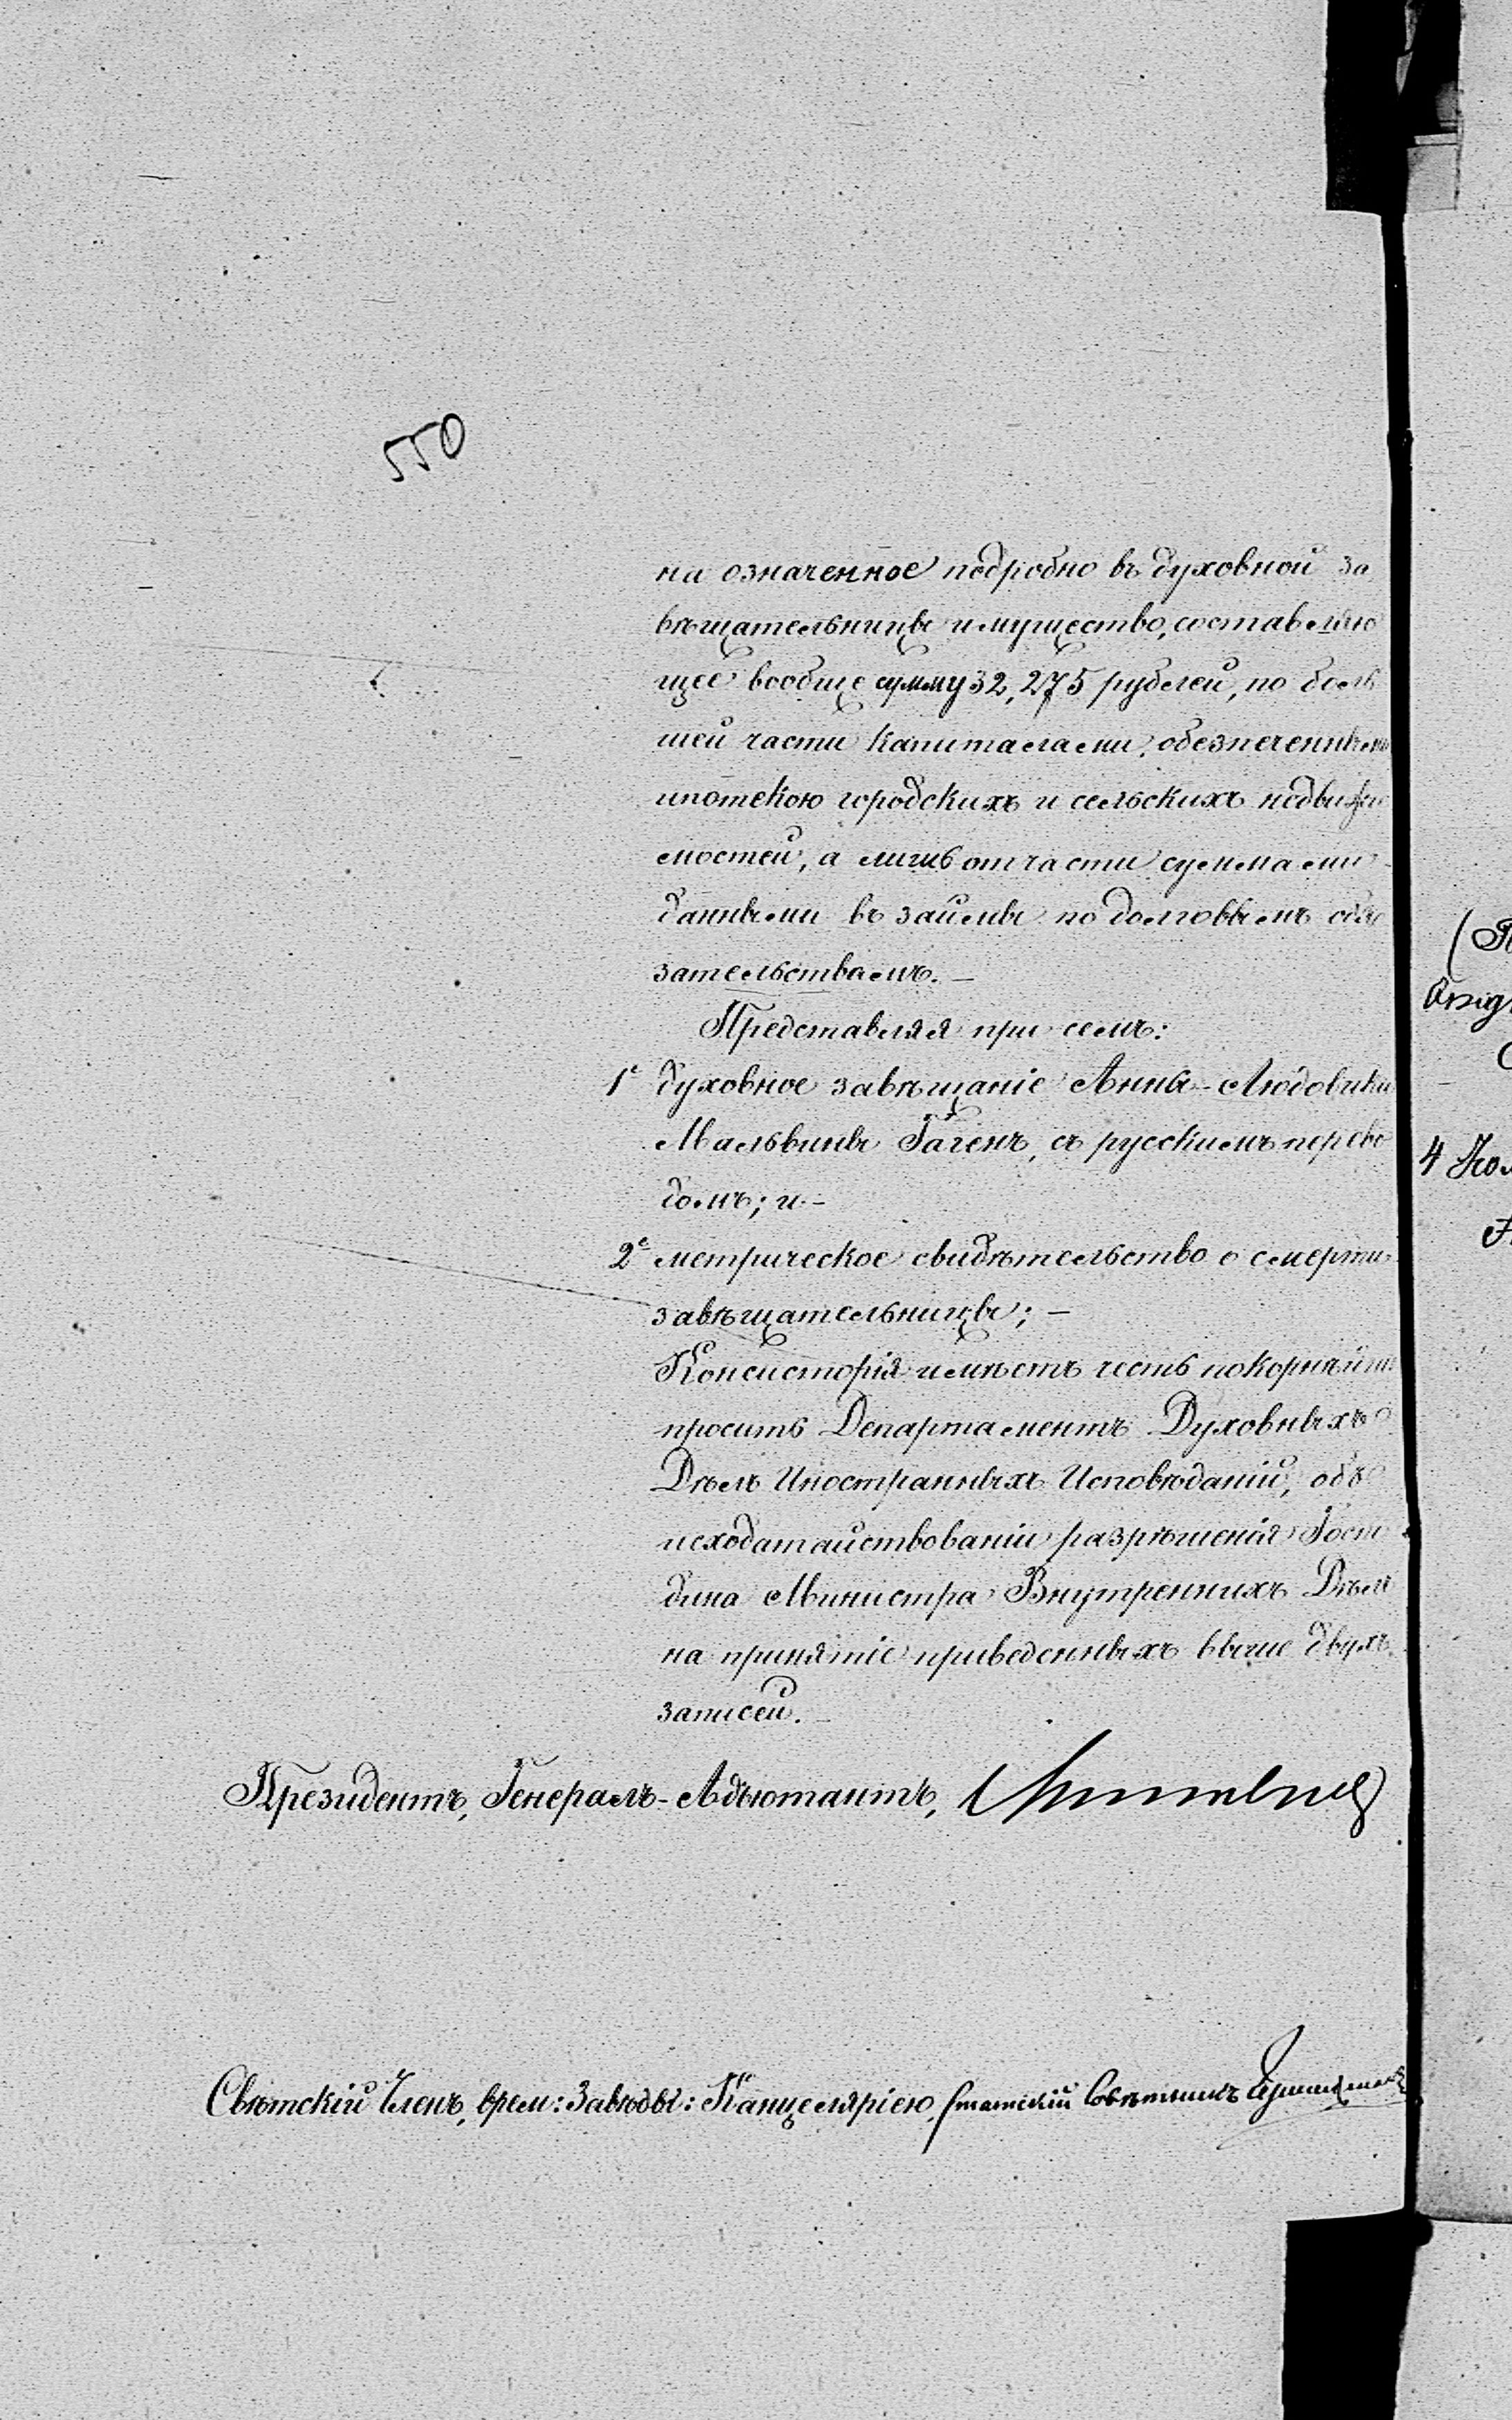 550
на означенное подробно въ духовной за
вѣщательницы имущество, составляю
щее вообще сумму 32,275 рублей, по боль
шей части капиталами, обезпеченными
ипотекою городскихъ и сельскихъ недвижи
мостей, а лишь отчасти суммами
данными въ займы по долговымъ обя
зательствамъ. —
Представляя при семъ:
1е духовное завѣщаніе Анны-Людовики
Мальвины Гагенъ, съ русскимъ перево
домъ; и -
2е метрическое свидѣтельство о смерти
завѣщательницы; —
Консисторія имѣетъ честь покорнѣйше
просить Департаментъ Духовныхъ
Дѣлъ Иностранныхъ Исповѣданій, объ
исходатайствованіи разрѣшенія Госпо
дина Министра Внутреннихъ Дѣлъ
на принятіе приведенныхъ выше двухъ
записей. —
Президентъ, Генералъ-Адъютантъ,
Свѣтскій Членъ, врем: Завѣдыв: Канцеляріею, Статскій Совѣтникъ
4